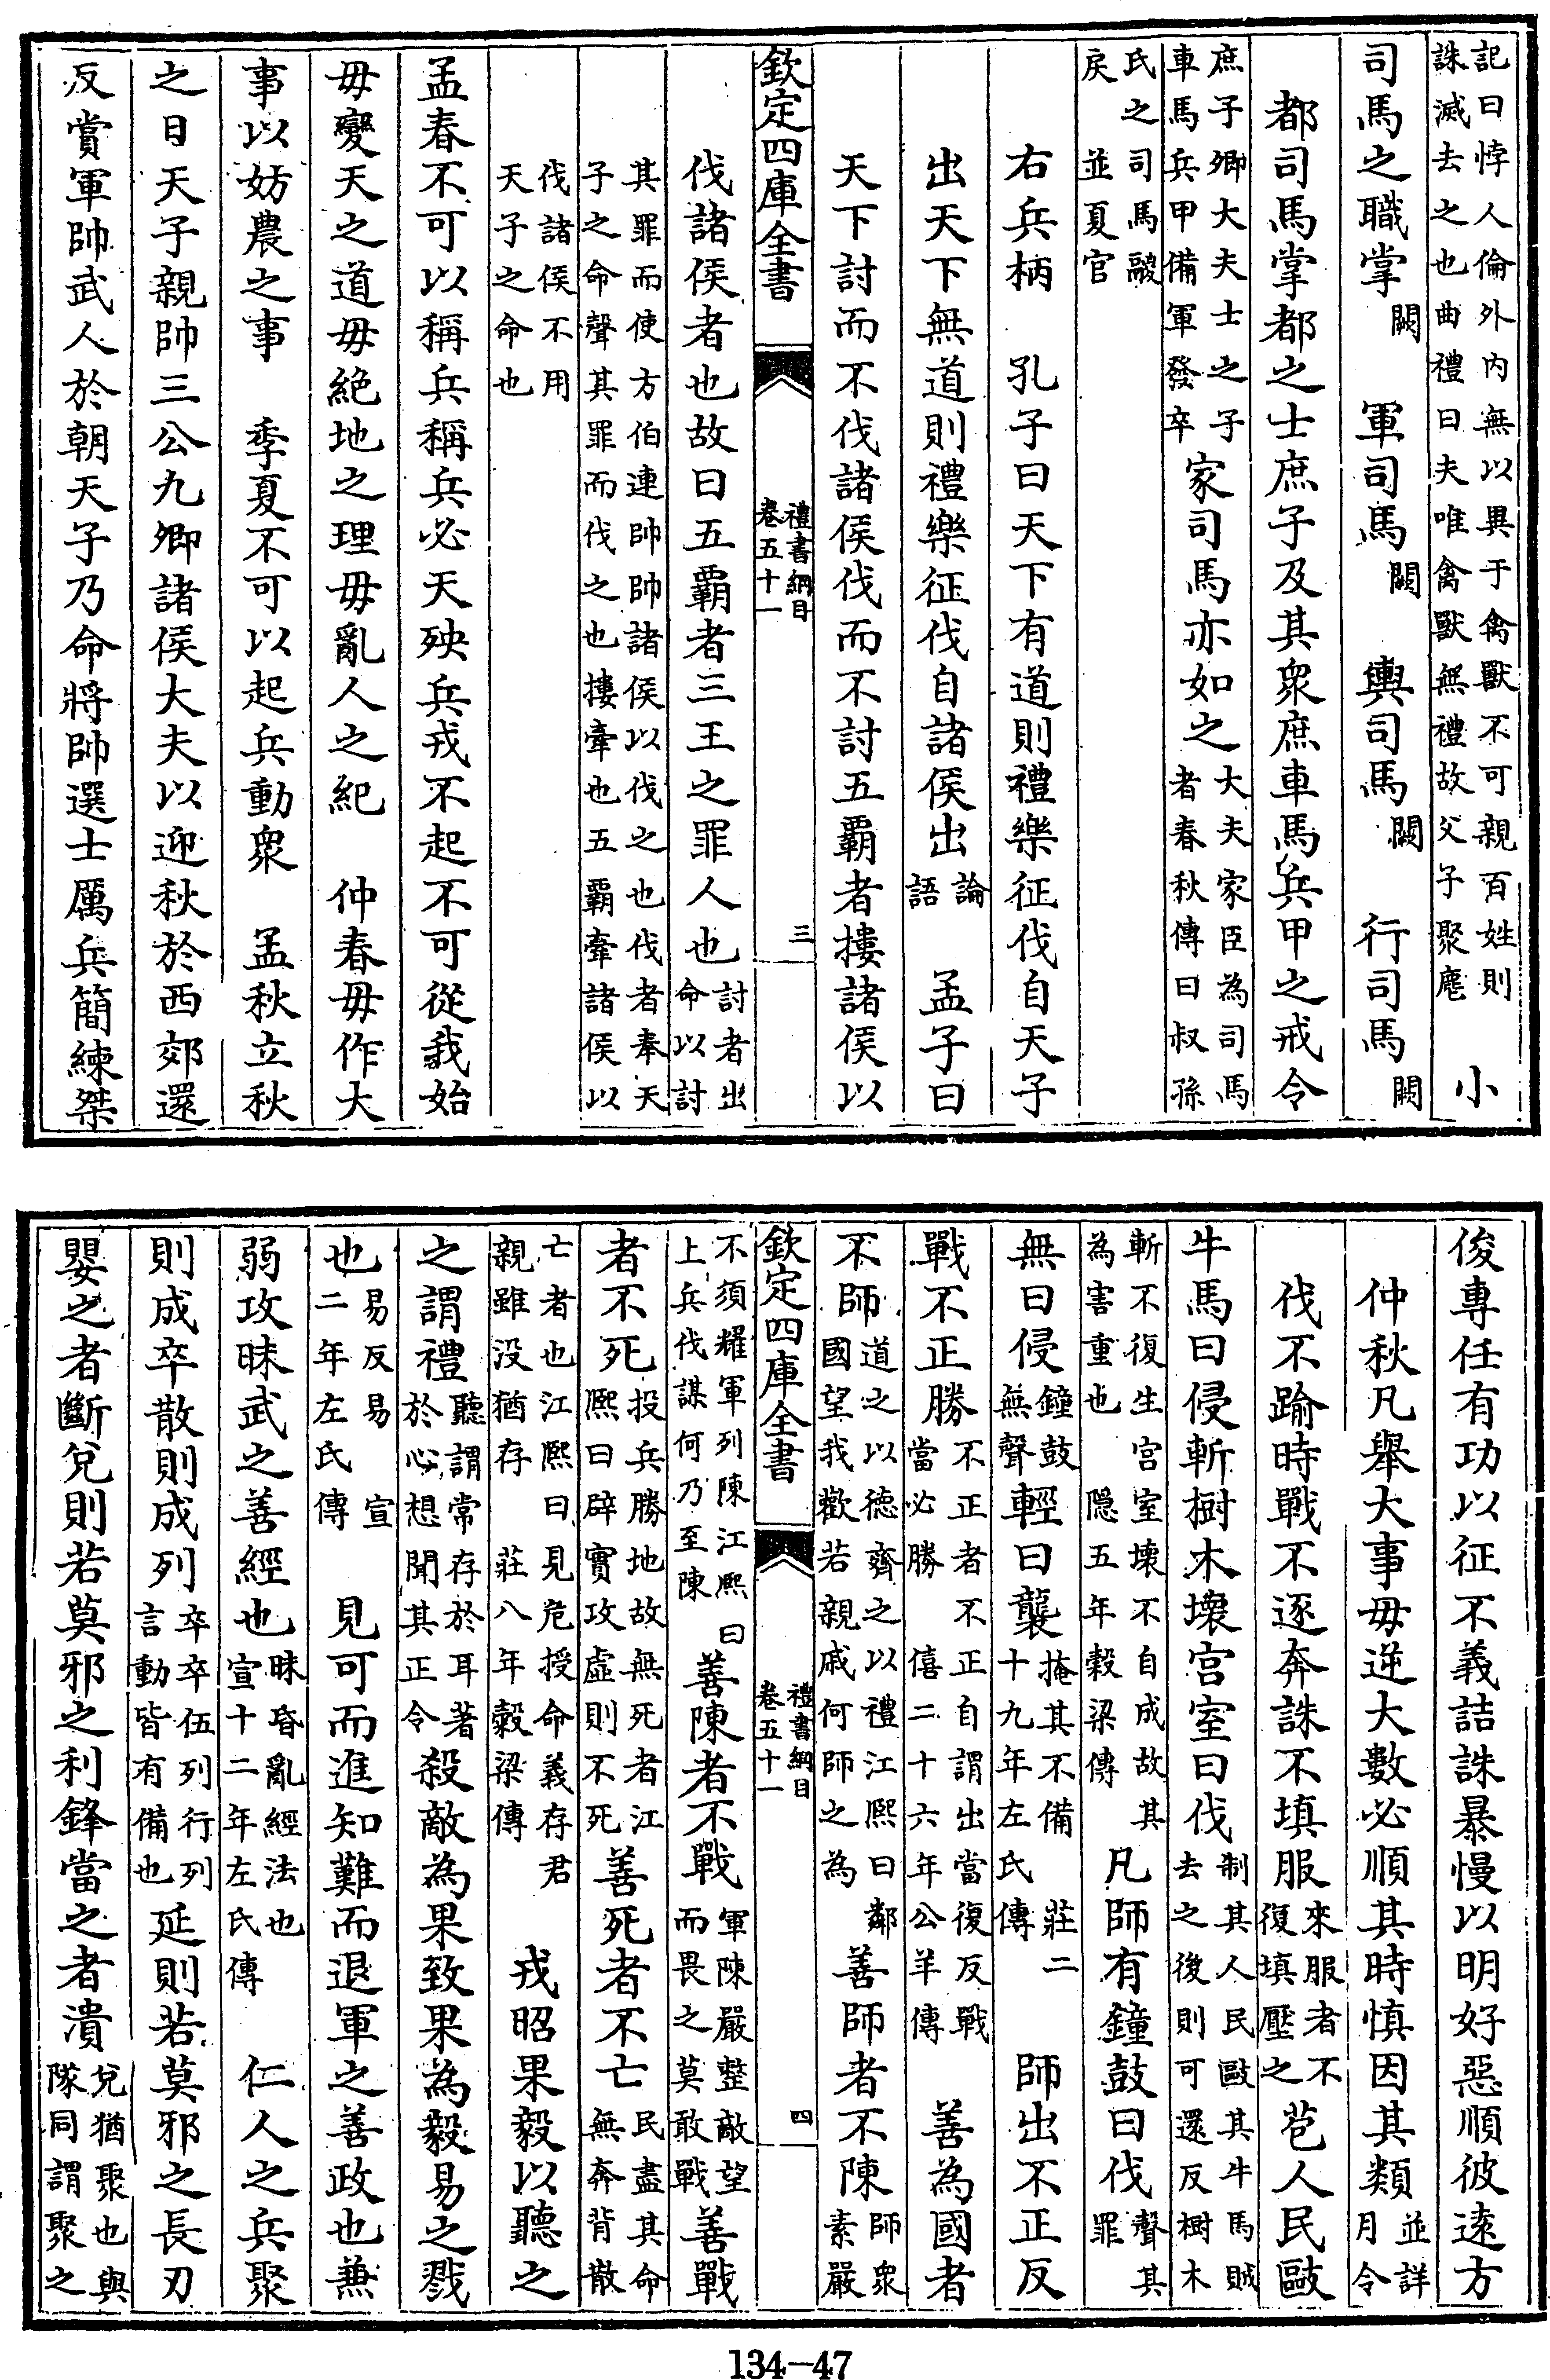 記曰悖人倫外内無以異于禽獸不可親百姓則
誅滅去之也曲禮曰夫唯禽獸無禮故父子聚麀
小
司馬之職掌
闕
軍司馬
闕
輿司馬
闕
行司馬
闕
都司馬掌都之士庶子及其衆庶車馬兵甲之戒令
庶子卿大夫士之子
車馬兵甲備軍發卒
家司馬亦如之
大夫家臣為司馬
者春秋傳曰叔孫
氏之司馬鬷
戾 並夏官
右兵柄 孔子曰天下有道則禮樂征伐自天子
出天下無道則禮樂征伐自諸侯出
論
語
孟子曰
天下討而不伐諸侯伐而不討五霸者摟諸侯以
欽定四庫全書
禮書綱目
卷五十一
三
伐諸侯者也故曰五霸者三王之罪人也
討者出
命以討
其罪而使方伯連帥帥諸侯以伐之也伐者奉天
子之命聲其罪而伐之也摟牽也五霸牽諸侯以
伐諸侯不用
天子之命也
孟春不可以稱兵稱兵必天殃兵戎不起不可從我始
毋變天之道毋絶地之理毋亂人之紀 仲春毋作大
事以妨農之事 季夏不可以起兵動衆 孟秋立秋
之日天子親帥三公九卿諸侯大夫以迎秋於西郊還
反賞軍帥武人於朝天子乃命將帥選士厲兵簡練桀
俊專任有功以征不義詰誅暴慢以明好惡順彼遠方
仲秋凡舉大事毋逆大數必順其時慎因其類
並詳
月令
伐不踰時戰不逐奔誅不填服
來服者不
復填壓之
苞人民毆
牛馬曰侵斬樹木壞宫室曰伐
制其人民毆其牛馬賊
去之後則可還反樹木
斬不復生宫室壞不自成故其
為害重也 隠五年穀梁傳
凡師有鐘鼓曰伐
聲其
罪
無曰侵
鐘鼓
無聲
輕曰襲
掩其不備 莊二
十九年左氏傳
師出不正反
戰不正勝
不正者不正自謂出當復反戰
當必勝 僖二十六年公羊傳
善為國者
不師
道之以德齊之以禮江熙曰鄰
國望我歡若親戚何師之為
善師者不陳
師衆
素嚴
欽定四庫全書
禮書綱目
卷五十一
四
不須耀軍列陳江熙曰
上兵伐謀何乃至陳
善陳者不戰
軍陳嚴整敵望
而畏之莫敢戰
善戰
者不死
投兵勝地故無死者江
熙曰辟實攻虛則不死
善死者不亡
民盡其命
無奔背散
亡者也江熙曰見危授命義存君
親雖没猶存 莊八年穀梁傳
戎昭果毅以聽之
之謂禮
聽謂常存於耳著
於心想聞其正令
殺敵為果致果為毅易之戮
也
易反易 宣
二年左氏傳
見可而進知難而退軍之善政也兼
弱攻昧武之善經也
昧昏亂經法也
宣十二年左氏傳
仁人之兵聚
則成卒散則成列
卒卒伍列行列
言動皆有備也
延則若莫邪之長刃
嬰之者斷兌則若莫邪之利鋒當之者潰
兌猶聚也與
隊同謂聚之
134—47